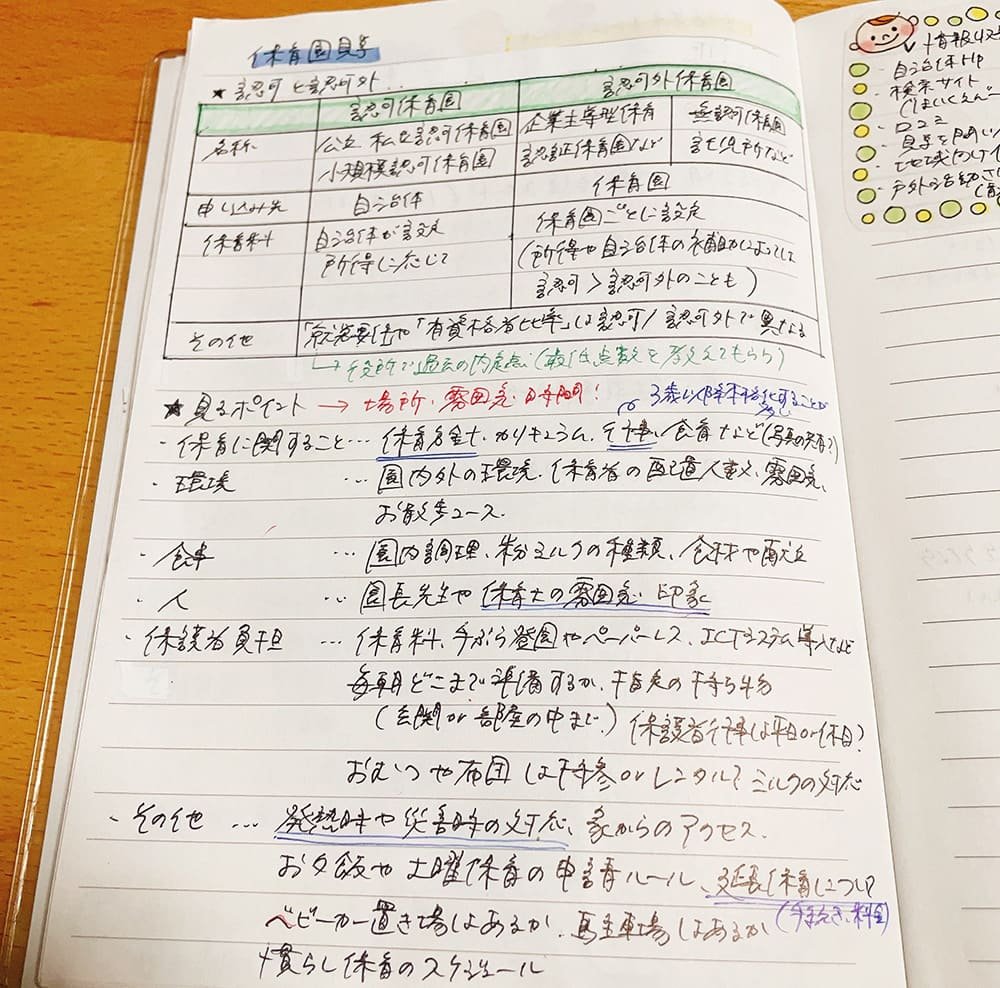 保育園見学
★ 認可と認可外
認可保育園
認可外保育園
名称
公立 私立認可保育園
小規模認可保育園
企業主導型保育
認証保育園など
無認可保育園
託児所など
申し込み先
自治体
保育園
保育料
自治体が設定
所得に応じて
保育園ごとに設定
(所得や自治体の補助によっては
認可>認可外のことも)
その他
「就労要件や「有資格者比率」は認可/認可外で異なる
→役所で過去の内定点(最低点数を教えてもらう)
★ 見るポイント → 場所・雰囲気・時間!
3歳以降本格化することが
多い
・保育に関すること… 保育方針、カリキュラム、行事、食育など(写真の共有?)
・環境 … 園内外の環境、保育者の配置人数、雰囲気、
お散歩コース
・食事 … 園内調理、粉ミルクの種類、食材や献立
・人 … 園長先生や保育士の雰囲気・印象
・保護者負担 … 保育料、手ぶら登園やペーパーレス、ICTシステム導入など
毎朝どこまで準備するか、指定の持ち物
(玄関or部屋の中まで?) 保護者行事は平日or休日?
おむつや布団は持参orレンタル? ミルクの対応
・その他 … 発熱時や災害時の対応、家からのアクセス
お夕飯や土曜保育の申請ルール、延長保育について
(手続き、料金)
ベビーカー置き場はあるか、駐車場はあるか
慣らし保育のスケジュール
情報リスト
・自治体HP
・検索サイト
・口コミ